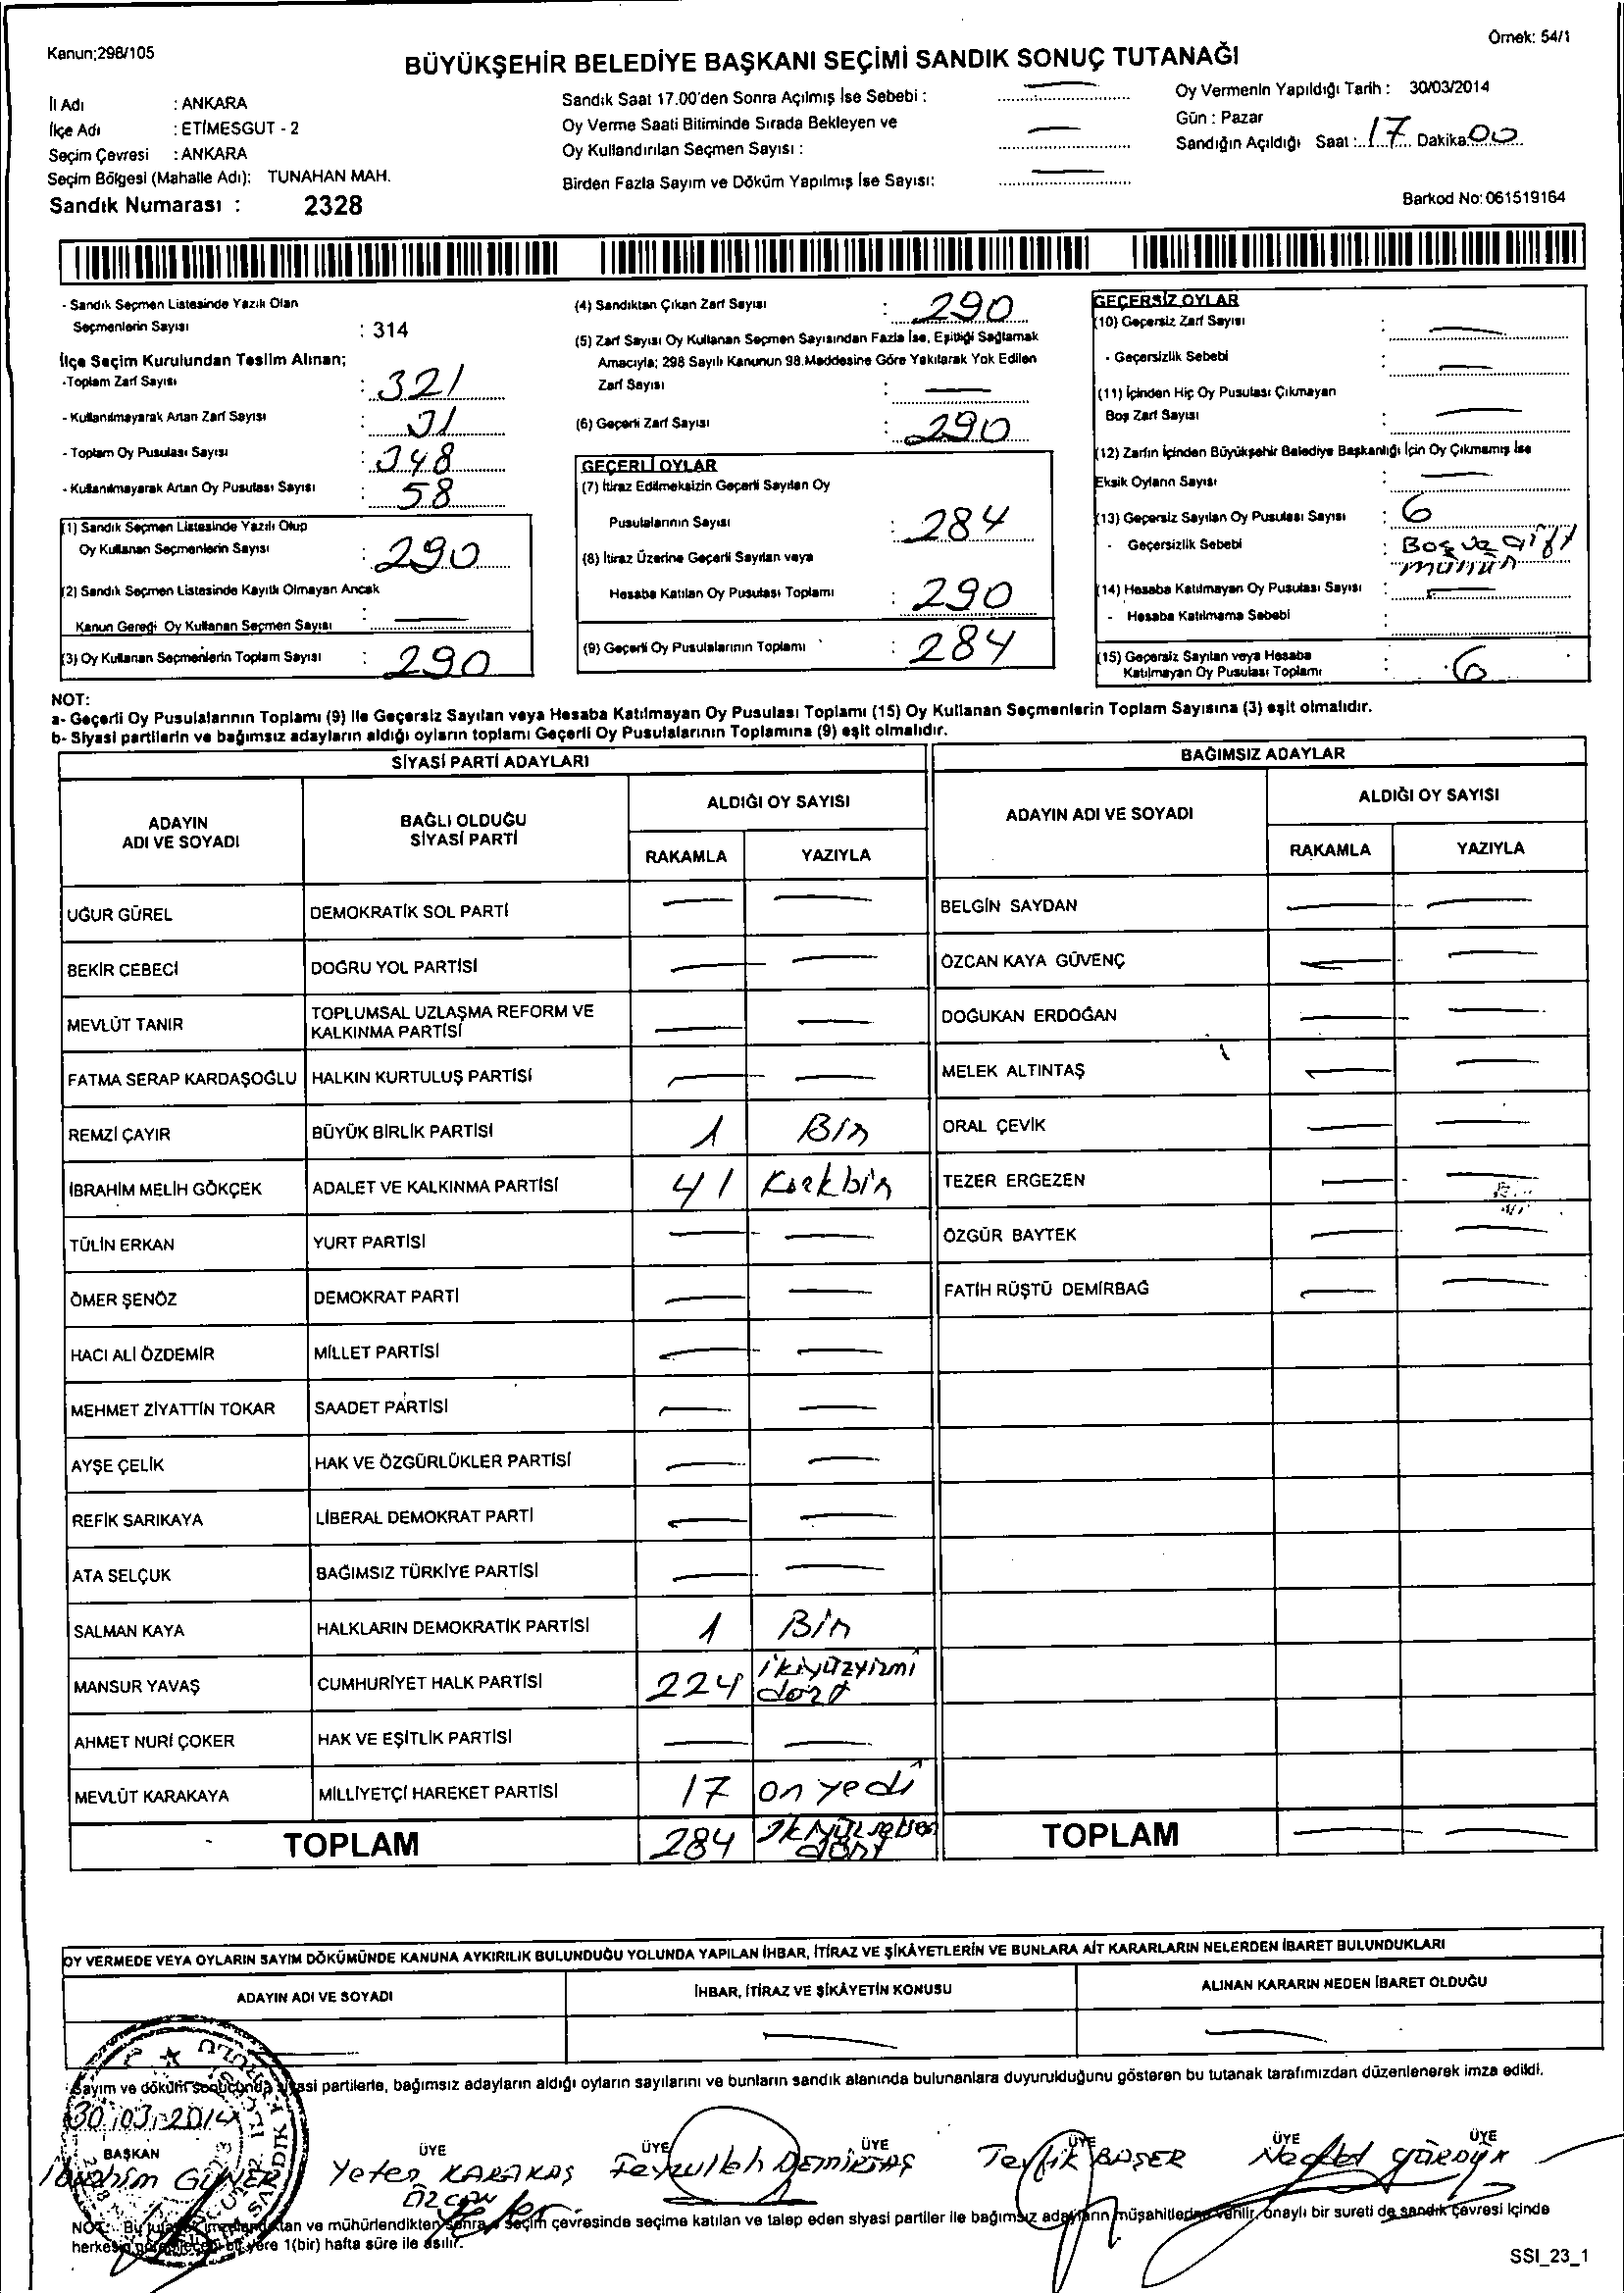 Kanun;298/105
Örnek: 54/1
BÜYÜKŞEHİR BELEDİYE BAŞKANI SEÇİMİ SANDIK SONUÇ TUTANAĞI
İl Adı : ANKARA
İlçe Adı : ETİMESGUT - 2
Seçim Çevresi : ANKARA
Seçim Bölgesi (Mahalle Adı): TUNAHAN MAH.
Sandık Numarası : 2328
Sandık Saat 17.00'den Sonra Açılmış İse Sebebi :
Oy Verme Saati Bitiminde Sırada Bekleyen ve
Oy Kullandırılan Seçmen Sayısı :
Birden Fazla Sayım ve Döküm Yapılmış İse Sayısı:
Oy Vermenin Yapıldığı Tarih : 30/03/2014
Gün : Pazar
Sandığın Açıldığı Saat : 17 Dakika: 00
Barkod No: 061519164
- Sandık Seçmen Listesinde Yazılı Olan
Seçmenlerin Sayısı : 314
İlçe Seçim Kurulundan Teslim Alınan;
-Toplam Zarf Sayısı : 321
- Kullanılmayarak Artan Zarf Sayısı : 31
- Toplam Oy Pusulası Sayısı : 348
- Kullanılmayarak Artan Oy Pusulası Sayısı : 58
(1) Sandık Seçmen Listesinde Yazılı Olup
Oy Kullanan Seçmenlerin Sayısı : 290
(2) Sandık Seçmen Listesinde Kayıtlı Olmayan Ancak
Kanun Gereği Oy Kullanan Seçmen Sayısı :
(3) Oy Kullanan Seçmenlerin Toplam Sayısı : 290
(4) Sandıktan Çıkan Zarf Sayısı : 290
(5) Zarf Sayısı Oy Kullanan Seçmen Sayısından Fazla İse, Eşitliği Sağlamak
Amacıyla; 298 Sayılı Kanunun 98.Maddesine Göre Yakılarak Yok Edilen
Zarf Sayısı :
(6) Geçerli Zarf Sayısı : 290
GEÇERLİ OYLAR
(7) İtiraz Edilmeksizin Geçerli Sayılan Oy
Pusulalarının Sayısı : 284
(8) İtiraz Üzerine Geçerli Sayılan veya
Hesaba Katılan Oy Pusulası Toplamı : 290
(9) Geçerli Oy Pusulalarının Toplamı : 284
GEÇERSİZ OYLAR
(10) Geçersiz Zarf Sayısı :
- Geçersizlik Sebebi :
(11) İçinden Hiç Oy Pusulası Çıkmayan
Boş Zarf Sayısı :
(12) Zarfın İçinden Büyükşehir Belediye Başkanlığı İçin Oy Çıkmamış İse
Eksik Oyların Sayısı :
(13) Geçersiz Sayılan Oy Pusulası Sayısı : 6
- Geçersizlik Sebebi : Boş ve çift
mühür
(14) Hesaba Katılmayan Oy Pusulası Sayısı :
- Hesaba Katılmama Sebebi :
(15) Geçersiz Sayılan veya Hesaba
Katılmayan Oy Pusulası Toplamı : 6
NOT:
a- Geçerli Oy Pusulalarının Toplamı (9) ile Geçersiz Sayılan veya Hesaba Katılmayan Oy Pusulası Toplamı (15) Oy Kullanan Seçmenlerin Toplam Sayısına (3) eşit olmalıdır.
b- Siyasi partilerin ve bağımsız adayların aldığı oyların toplamı Geçerli Oy Pusulalarının Toplamına (9) eşit olmalıdır.
SİYASİ PARTİ ADAYLARI
ADAYIN
ADI VE SOYADI
BAĞLI OLDUĞU
SİYASİ PARTİ
ALDIĞI OY SAYISI
RAKAMLA YAZIYLA
UĞUR GÜREL DEMOKRATİK SOL PARTİ
BEKİR CEBECİ DOĞRU YOL PARTİSİ
MEVLÜT TANIR TOPLUMSAL UZLAŞMA REFORM VE
KALKINMA PARTİSİ
FATMA SERAP KARDAŞOĞLU HALKIN KURTULUŞ PARTİSİ
REMZİ ÇAYIR BÜYÜK BİRLİK PARTİSİ 1 Bir
İBRAHİM MELİH GÖKÇEK ADALET VE KALKINMA PARTİSİ 41 Kırkbir
TÜLİN ERKAN YURT PARTİSİ
ÖMER ŞENÖZ DEMOKRAT PARTİ
HACI ALİ ÖZDEMİR MİLLET PARTİSİ
MEHMET ZİYATTİN TOKAR SAADET PARTİSİ
AYŞE ÇELİK HAK VE ÖZGÜRLÜKLER PARTİSİ
REFİK SARIKAYA LİBERAL DEMOKRAT PARTİ
ATA SELÇUK BAĞIMSIZ TÜRKİYE PARTİSİ
SALMAN KAYA HALKLARIN DEMOKRATİK PARTİSİ 1 Bir
MANSUR YAVAŞ CUMHURİYET HALK PARTİSİ 224 ikiyüzyirmi
dört
AHMET NURİ ÇOKER HAK VE EŞİTLİK PARTİSİ
MEVLÜT KARAKAYA MİLLİYETÇİ HAREKET PARTİSİ 17 on yedi
TOPLAM 284 ikiyüzseksen
dört
BAĞIMSIZ ADAYLAR
ADAYIN ADI VE SOYADI
ALDIĞI OY SAYISI
RAKAMLA YAZIYLA
BELGİN SAYDAN
ÖZCAN KAYA GÜVENÇ
DOĞUKAN ERDOĞAN
MELEK ALTINTAŞ
ORAL ÇEVİK
TEZER ERGEZEN
ÖZGÜR BAYTEK
FATİH RÜŞTÜ DEMİRBAĞ
TOPLAM
OY VERMEDE VEYA OYLARIN SAYIM DÖKÜMÜNDE KANUNA AYKIRILIK BULUNDUĞU YOLUNDA YAPILAN İHBAR, İTİRAZ VE ŞİKÂYETLERİN VE BUNLARA AİT KARARLARIN NELERDEN İBARET BULUNDUKLARI
ADAYIN ADI VE SOYADI
İHBAR, İTİRAZ VE ŞİKÂYETİN KONUSU
ALINAN KARARIN NEDEN İBARET OLDUĞU
Sayım ve döküm sonucunda siyasi partilerle, bağımsız adayların aldığı oyların sayılarını ve bunların sandık alanında bulunanlara duyurulduğunu gösteren bu tutanak tarafımızdan düzenlenerek imza edildi.
30/03/2014
BAŞKAN ÜYE ÜYE ÜYE ÜYE ÜYE ÜYE
İbrahim GÜNER Yeter KARAKAŞ Feyzullah DEMİRTAŞ Tevfik BAŞER Necdet GÖRDÜK
ÖZCAN
NOT: Bu tutanak imzalandıktan ve mühürlendikten sonra seçim çevresinde seçime katılan ve talep eden siyasi partiler ile bağımsız adayların müşahitlerine verilir, onaylı bir sureti de sandık çevresi içinde
herkesin görebileceği bir yere 1(bir) hafta süre ile asılır.
SSI_23_1